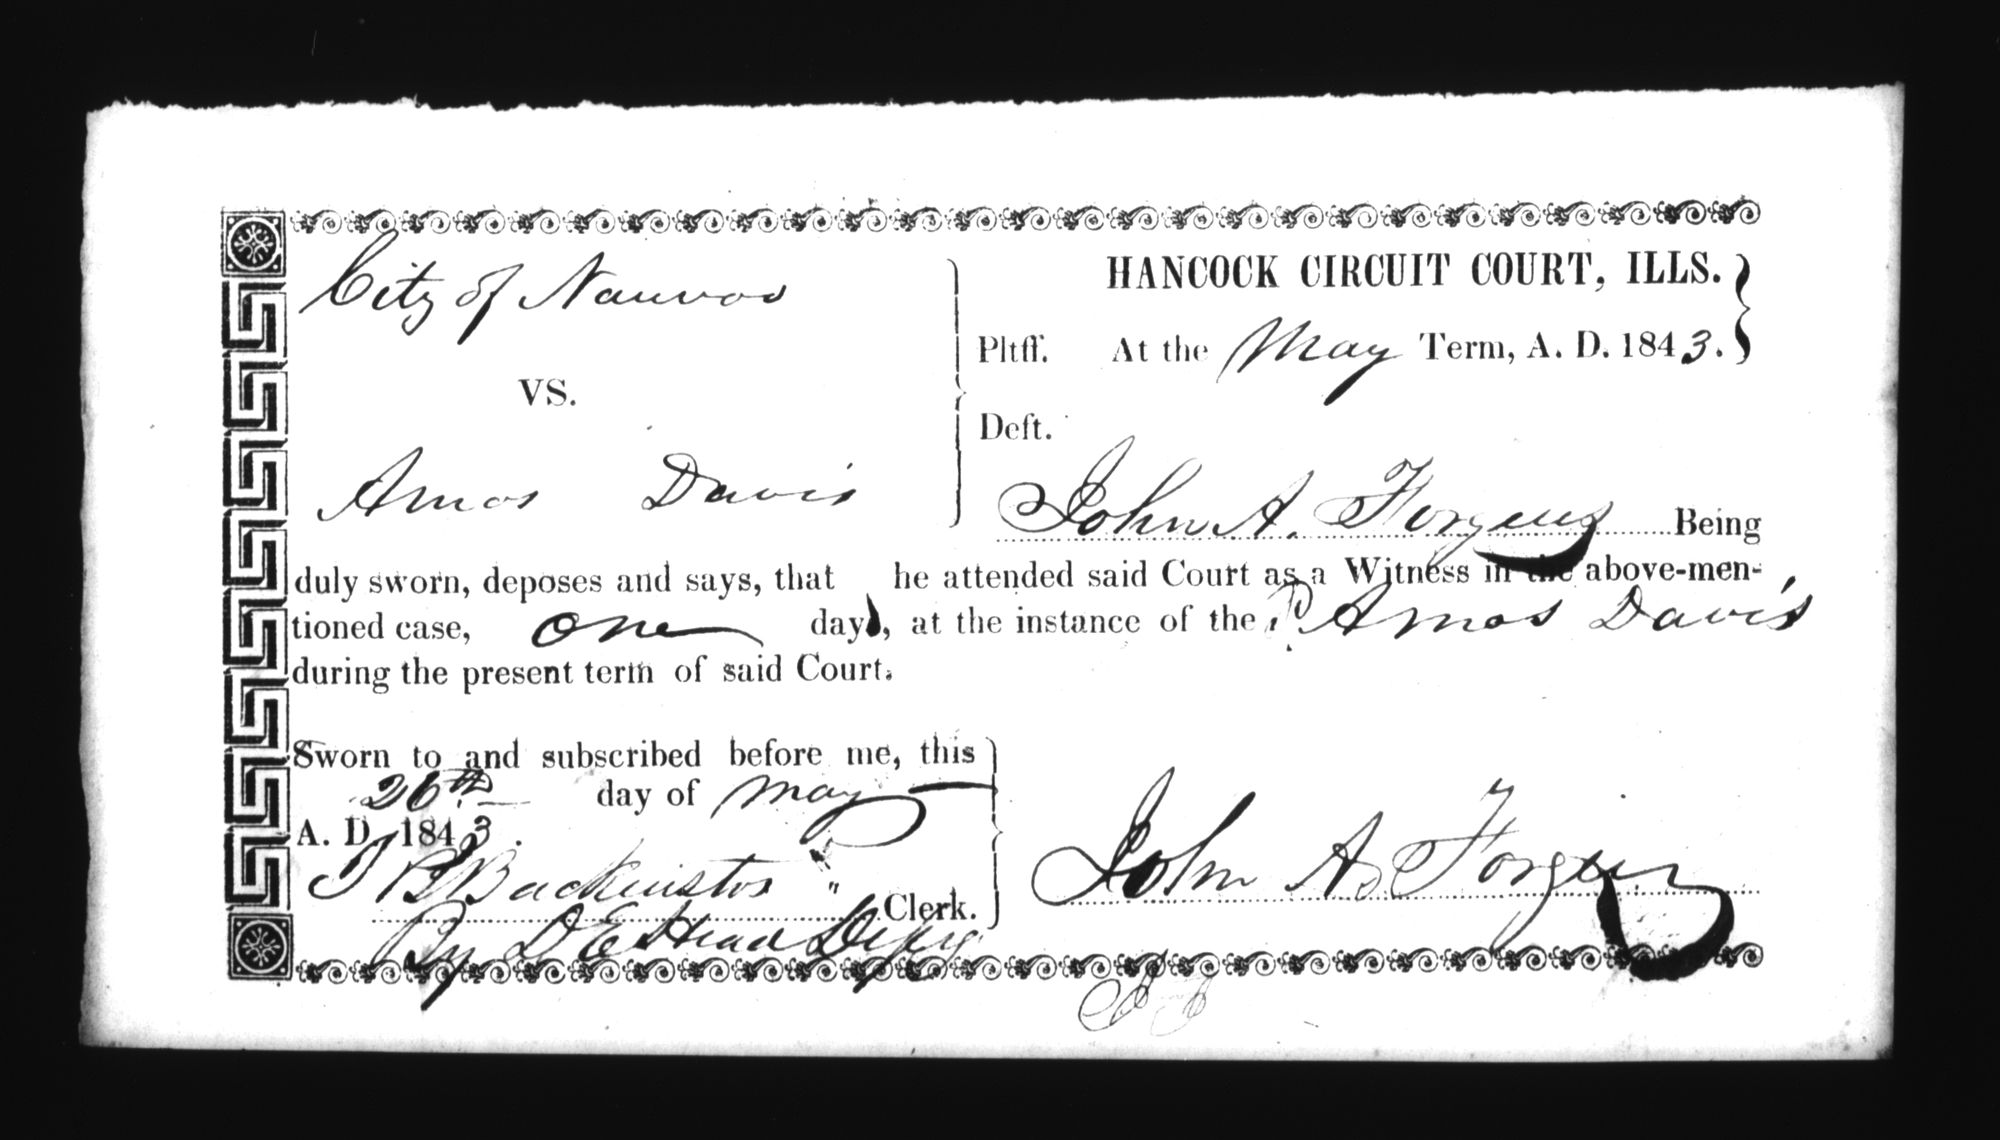 City of Nauvoo
HANCOCK CIRCUIT COURT, ILLS.
Pltff. At the May Term, A. D. 1843.
VS.
Deft.
Amos Davis
John A. Forgeus Being
duly sworn, deposes and says, that he attended said Court as a Witness in the above-men-
tioned case, one day, at the instance of the Amos Davis
during the present term of said Court.
Sworn to and subscribed before me, this
26th day of May
A. D. 1843.
J B Backenstos Clerk.
By D E Head Depty
John A. Forgeus